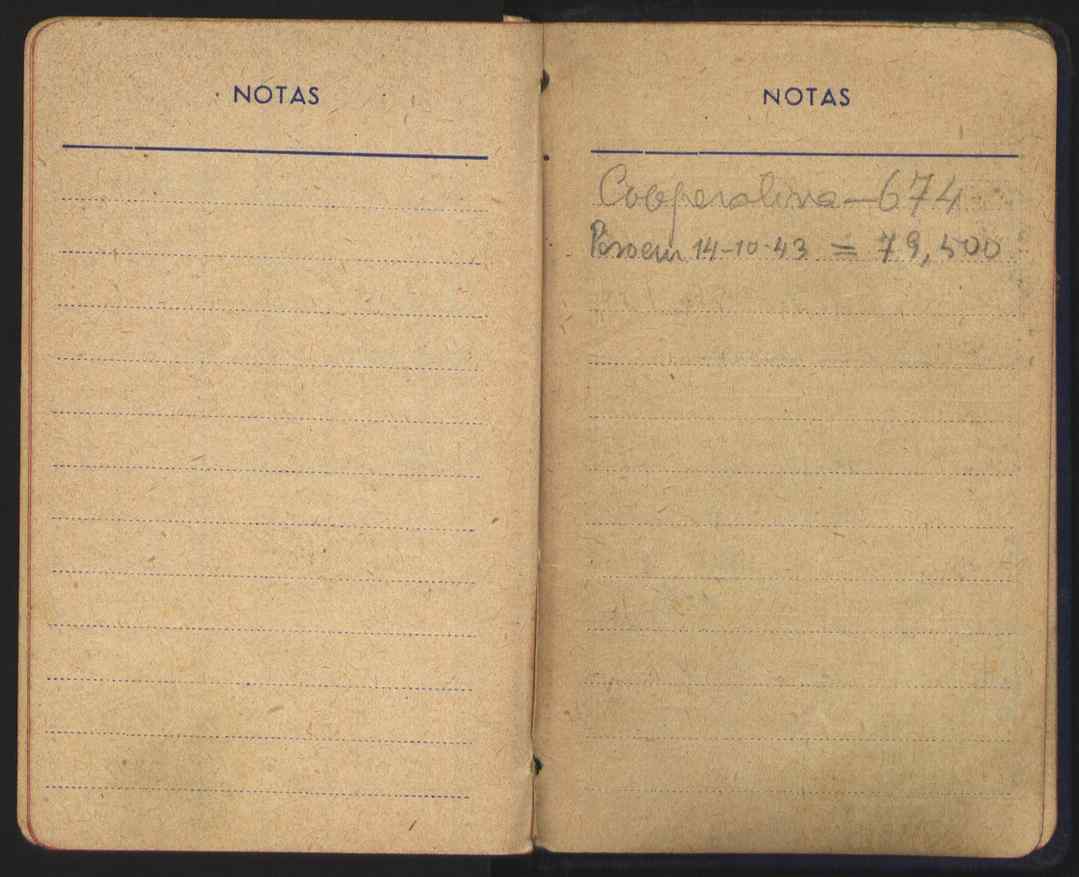 NOTAS
NOTAS
Cooperativa — 674
Peso em 14-10-43 = 79,500